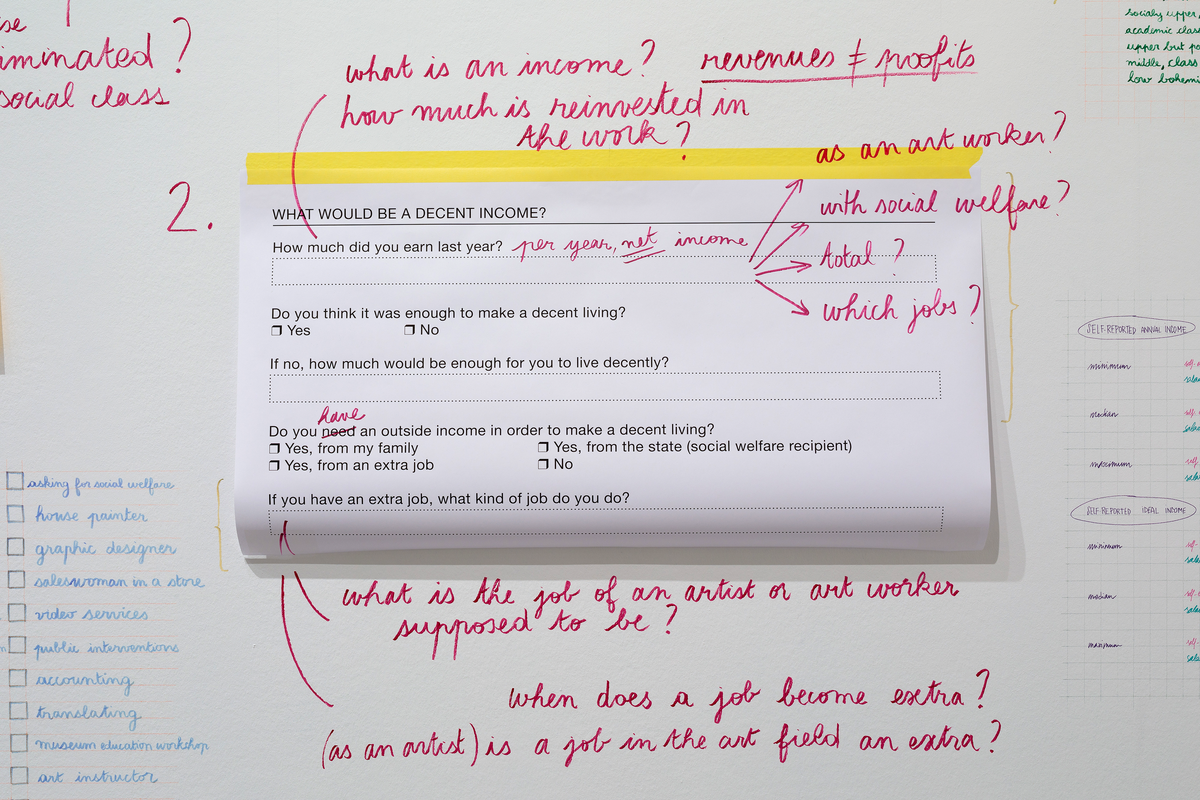 iminated?
social class
what is an income? revenues ≠ profits
how much is reinvested in
the work?
2.
as an art worker?
with social welfare?
total?
which jobs?
WHAT WOULD BE A DECENT INCOME?
How much did you earn last year? per year, net income
Do you think it was enough to make a decent living?
❒ Yes ❒ No
If no, how much would be enough for you to live decently?
have
Do you need an outside income in order to make a decent living?
❒ Yes, from my family ❒ Yes, from the state (social welfare recipient)
❒ Yes, from an extra job ❒ No
If you have an extra job, what kind of job do you do?
what is the job of an artist or art worker
supposed to be?
when does a job become extra?
(as an artist) is a job in the art field an extra?
asking for social welfare
house painter
graphic designer
saleswoman in a store
video services
public interventions
accounting
translating
museum education workshop
art instructor
socialy upper,
academic clas
upper but po
middle, class
low bohemi
SELF-REPORTED ANNUAL INCOME
minimum
median
maximum
SELF-REPORTED IDEAL INCOME
minimum
median
maximum